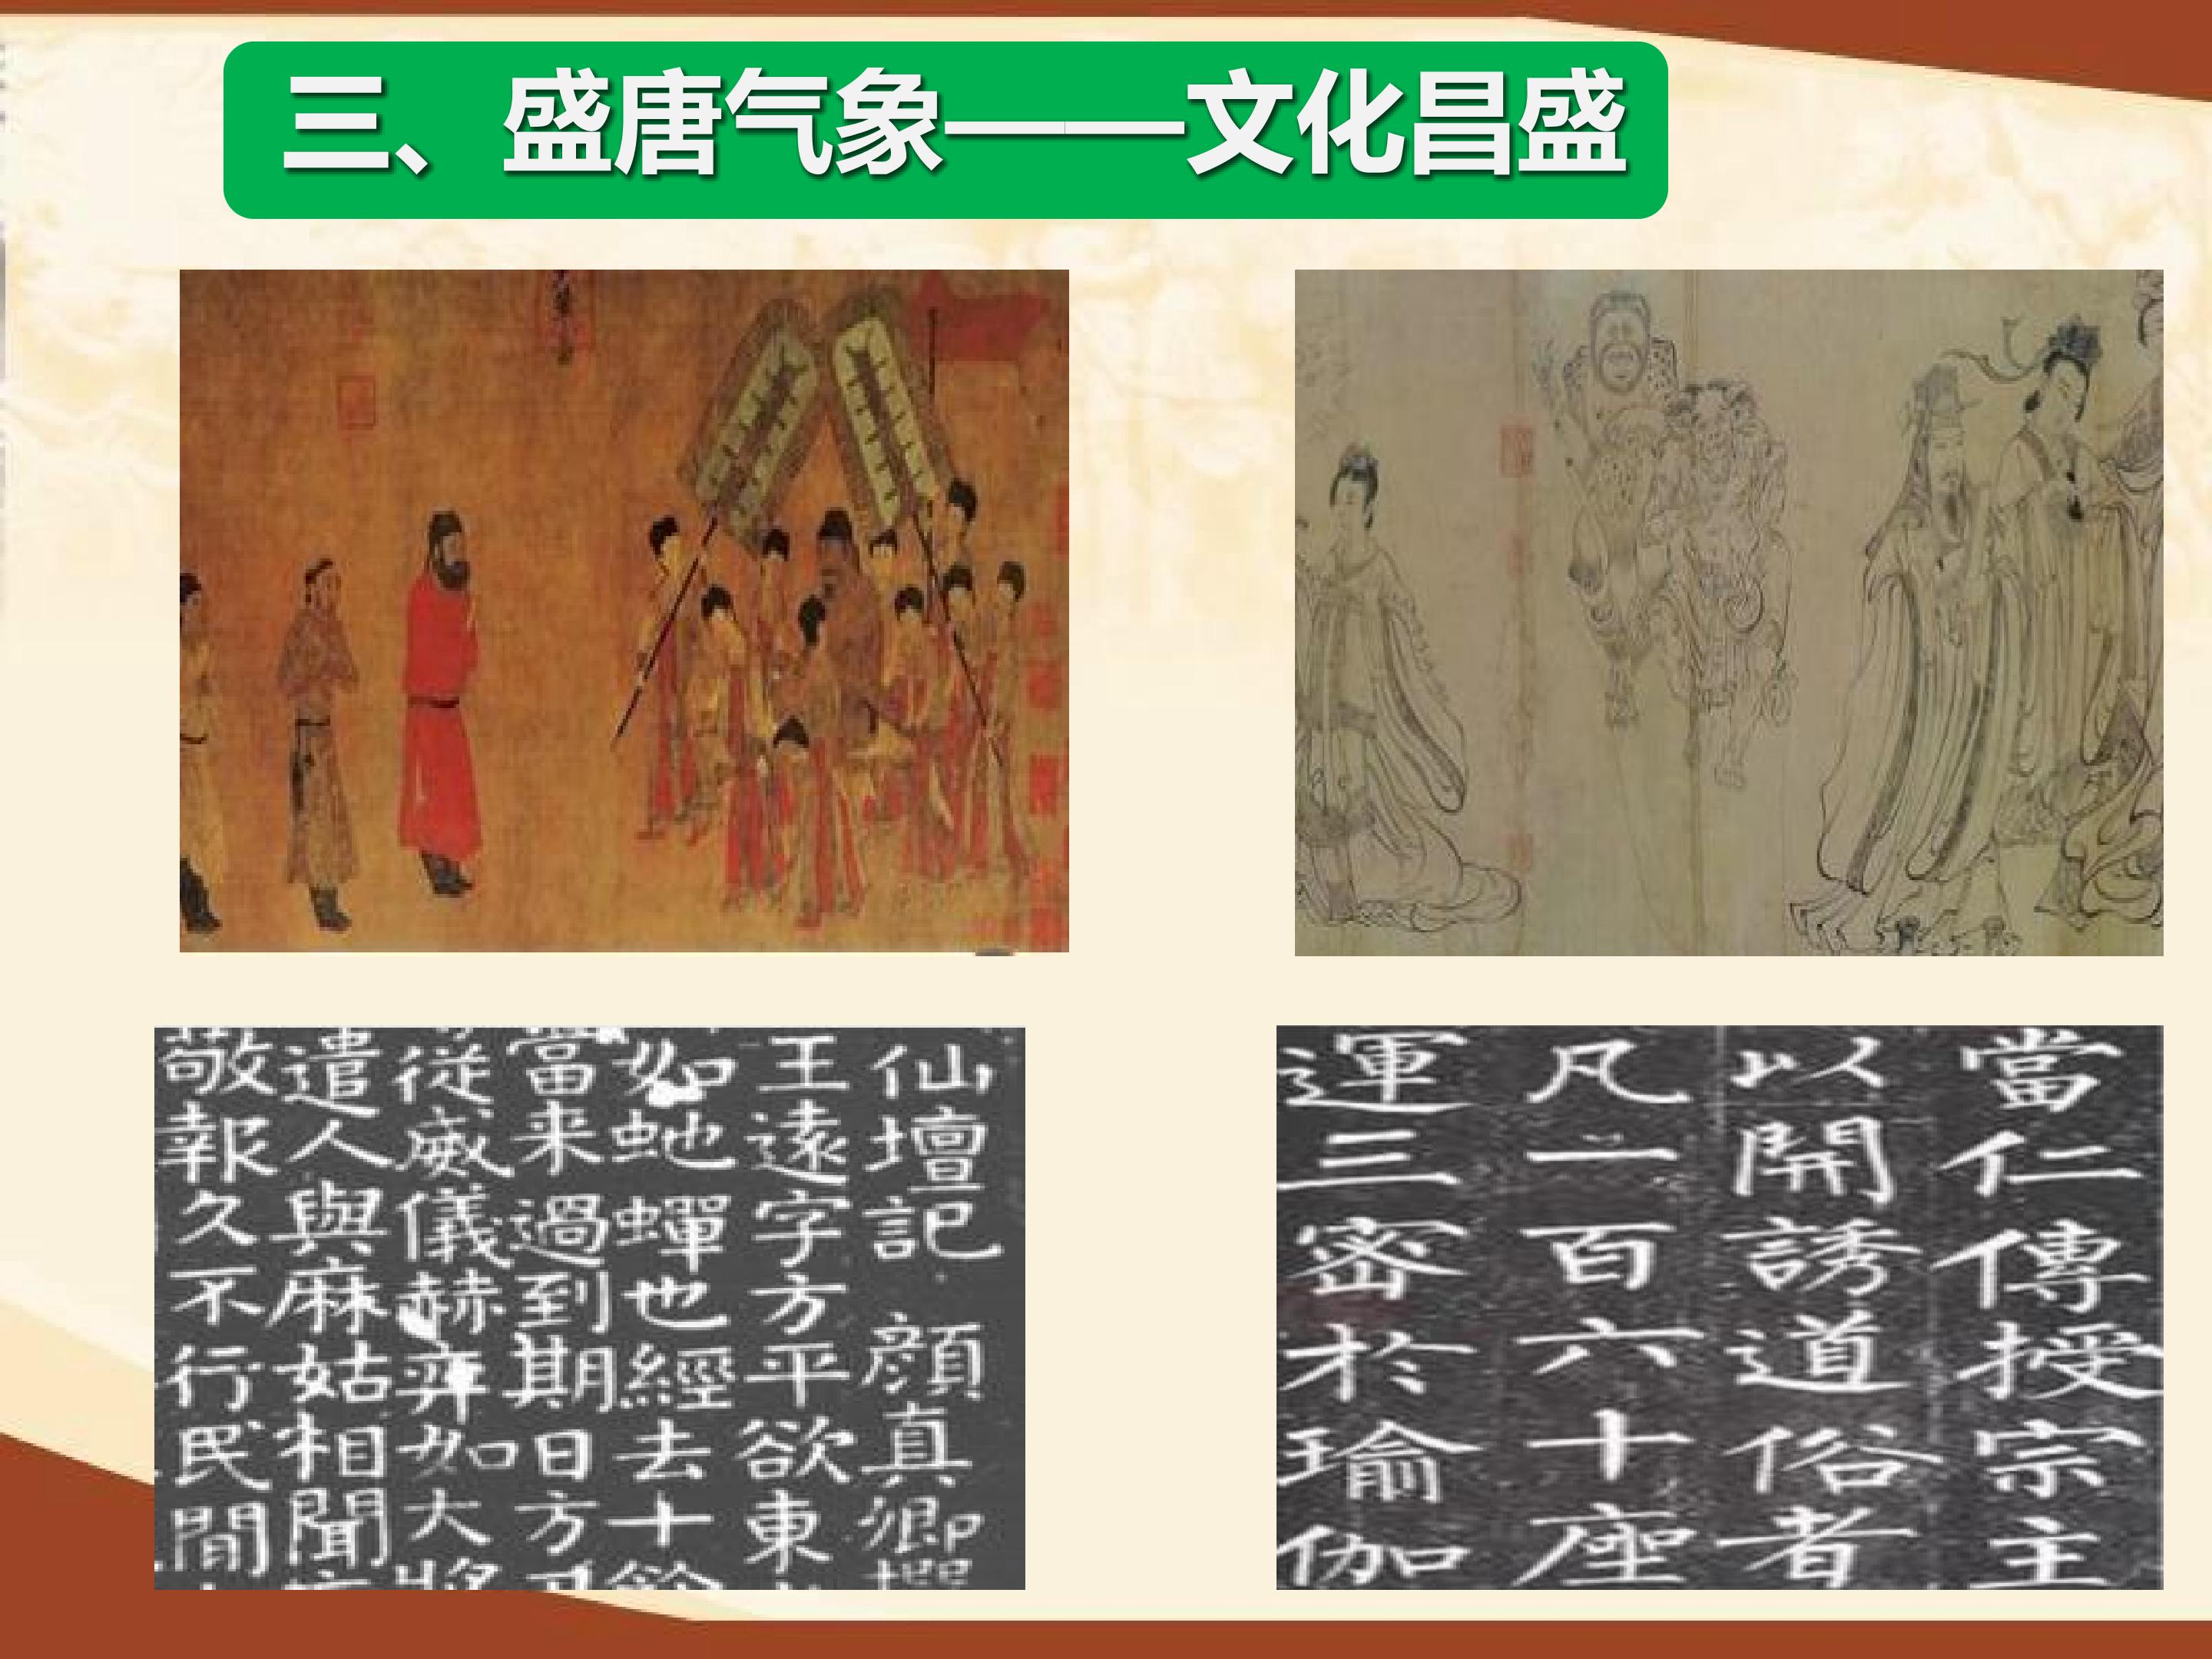 三、盛唐气象——文化昌盛
仙壇記 顔真卿撰
王遠字方平欲東
如虵蟬也經去十餘
當来過到期日方
従威儀赫弈如大將
遣人與麻姑相聞
敬報久不行民間
當仁傳授宗主
以開誘道俗者
凡一百六十座
運三密於瑜伽